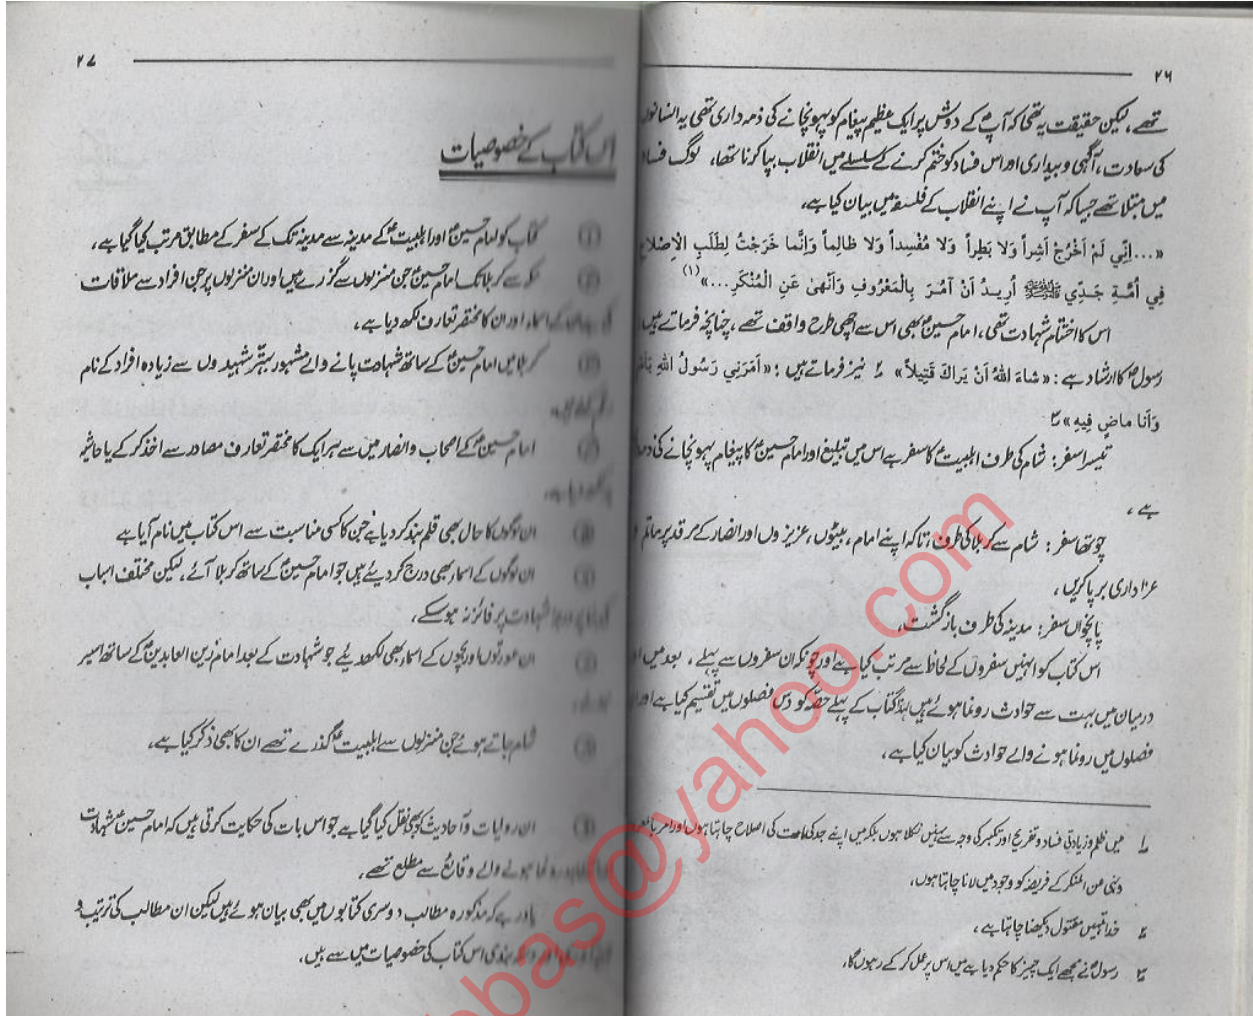 ۲۶
تھے، لیکن حقیقت یہ تھی کہ آپؑ کے دوش پر ایک عظیم پیغام کو پہونچانے کی ذمہ داری تھی یہ انسانوں
کی سعادت، آگہی و بیداری اور اس فساد کو ختم کرنے کے سلسلے میں انقلاب بپا کرنا تھا، لوگ فساد
میں مبتلا تھے جیسا کہ آپ نے اپنے انقلاب کے فلسفہ میں بیان کیا ہے،
«...اِنّي لَمْ اَخْرُجْ اَشِراً وَلا بَطِراً وَلا مُفْسِداً وَلا ظالِماً وَاِنَّما خَرَجْتُ لِطَلَبِ الْاِصْلاحِ
فِي اُمَّةِ جَدِّي ﷺ اُرِيدُ اَنْ آمُرَ بِالْمَعْرُوفِ وَاَنْهىٰ عَنِ الْمُنْكَرِ...»(۱)
اس کا اختتام شہادت تھی، امام حسینؑ بھی اس سے اچھی طرح واقف تھے، چنانچہ فرماتے ہیں
رسولؐ کا ارشاد ہے: «شاءَ اللهُ اَنْ يَراكَ قَتِيلاً» ۲ نیز فرماتے ہیں: «اَمَرَنِي رَسُولُ اللهِ بِاَمْرٍ
وَاَنا ماضٍ فِيهِ» ۳
تیسرا سفر: شام کی طرف اہلبیتؑ کا سفر ہے اس میں تبلیغ اور امام حسینؑ کا پیغام پہونچانے کی
ہے،
چوتھا سفر: شام سے کربلا کی طرف، تاکہ اپنے امام، بیٹوں، عزیزوں اور انصار کے مرقد پر ماتم و
عزاداری برپا کریں،
پانچواں سفر: مدینہ کی طرف بازگشت،
اس کتاب کو انہیں سفروں کے لحاظ سے مرتب کیا ہے اور چونکہ ان سفروں سے پہلے، بعد میں اور
درمیان میں بہت سے حوادث رونما ہوئے ہیں لہٰذا کتاب کے پہلے حصّہ کو دس فصلوں میں تقسیم کیا ہے اور
فصلوں میں رونما ہونے والے حوادث کو بیان کیا ہے،
۱ میں ظلم و زیادتی فساد و تفریح اور تکبر کی وجہ سے نہیں نکلا ہوں بلکہ میں اپنے جد کی امت کی اصلاح چاہتا ہوں اور امر بالمعروف
و نہی عن المنکر کے فریضہ کو وجود میں لانا چاہتا ہوں،
۲ خدا تمہیں مقتول دیکھنا چاہتا ہے،
۳ رسولؐ نے مجھے ایک چیز کا حکم دیا ہے میں اس پر عمل کر کے رہوں گا،
۲۷
اس کتاب کے خصوصیات
① کتاب کو امام حسینؑ اور اہلبیتؑ کے مدینہ سے مدینہ تک کے سفر کے مطابق مرتب کیا گیا ہے،
② مکہ سے کربلا تک امام حسینؑ جن منزلوں سے گزرے ہیں اور ان منزلوں پر جن افراد سے ملاقات
کے اسماء اور ان کا مختصر تعارف لکھ دیا ہے،
③ کربلا میں امام حسینؑ کے ساتھ شہادت پانے والے مشہور بہتر شہیدوں سے زیادہ افراد کے نام
④ امام حسینؑ کے اصحاب و انصار میں سے ہر ایک کا مختصر تعارف مصادر سے اخذ کر کے یا حاشیہ
⑤ ان لوگوں کا حال بھی قلم بند کر دیا ہے جن کا کسی مناسبت سے اس کتاب میں نام آیا ہے
⑥ ان لوگوں کے اسماء بھی درج کر دیئے ہیں جو امام حسینؑ کے ساتھ کربلا آئے، لیکن مختلف اسباب
شہادت پر فائز نہ ہو سکے،
⑦ ان عورتوں اور بچوں کے اسماء بھی لکھ دیئے جو شہادت کے بعد امام زین العابدینؑ کے ساتھ اسیر
⑧ شام جاتے ہوئے جن منزلوں سے اہلبیتؑ گذرے تھے ان کا بھی ذکر کیا ہے،
⑨ ان روایات و احادیث کو بھی نقل کیا گیا ہے جو اس بات کی حکایت کرتی ہیں کہ امام حسینؑ شہادت
رونما ہونے والے وقائع سے مطلع تھے،
یاد رہے کہ مذکورہ مطالب دوسری کتابوں میں بھی بیان ہوئے ہیں لیکن ان مطالب کی ترتیب و
بندی اس کتاب کی خصوصیات میں سے ہیں،
bas@yahoo.com